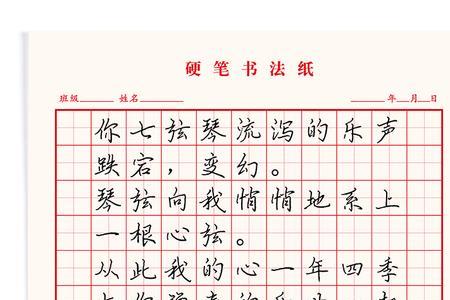 硬笔书法纸
班级 姓名 年 月 日
你七弦琴流泻的乐声
跌宕，变幻。
琴弦向我悄悄地系上
一根心弦。
从此我的心一年四季